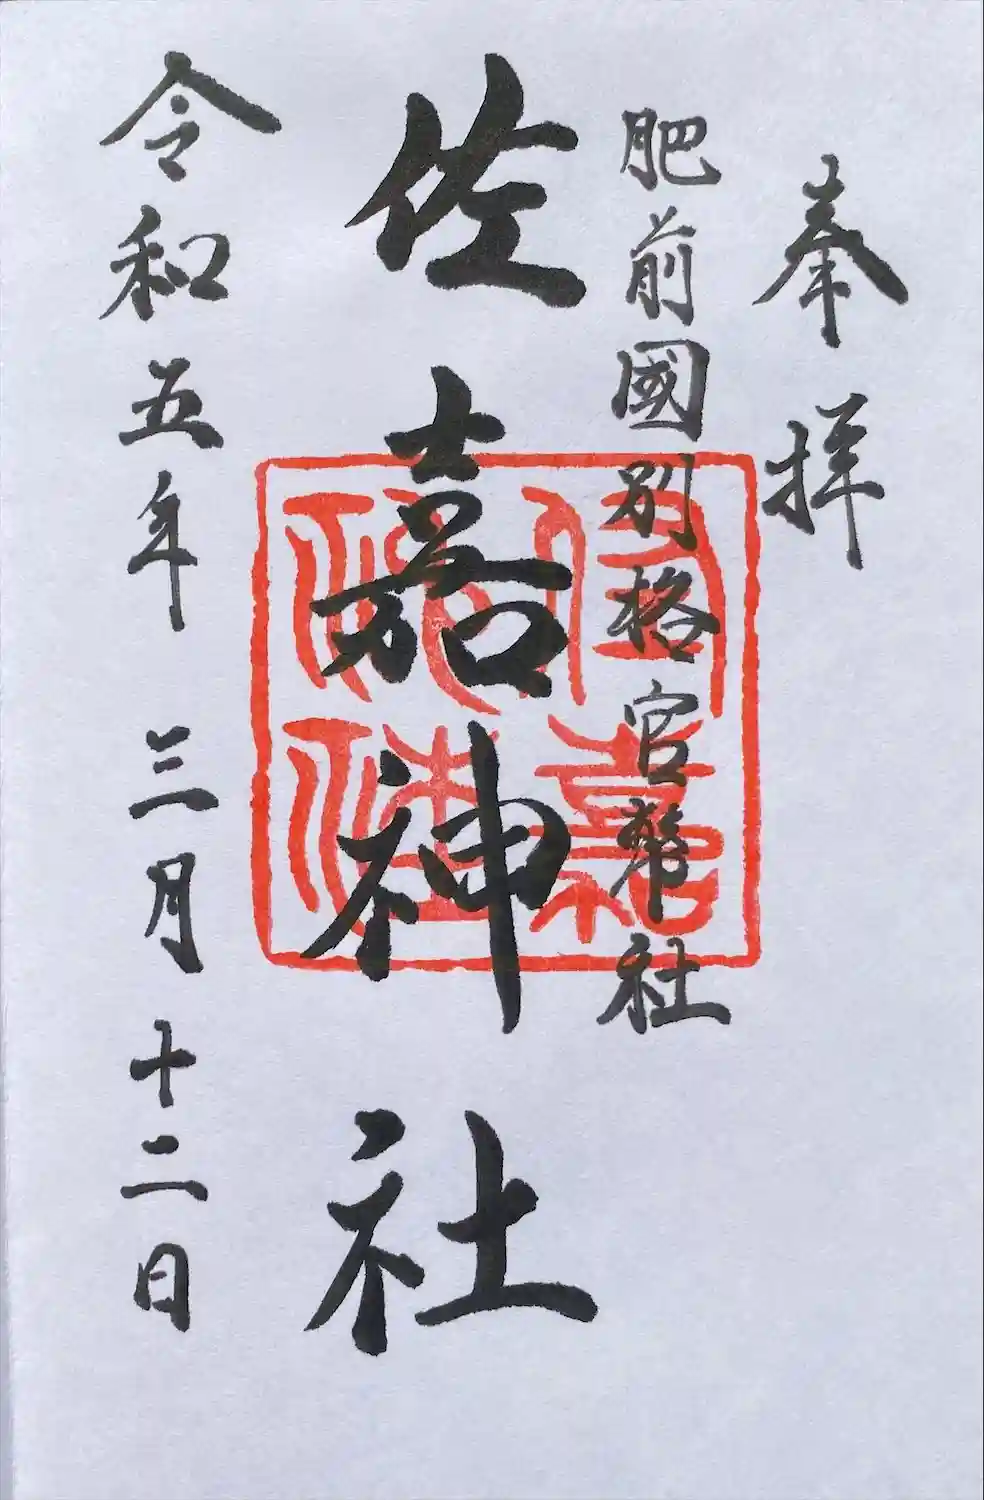 奉拝
肥前國別格官幣社
佐嘉神社
佐嘉神社
令和五年 三月 十二日